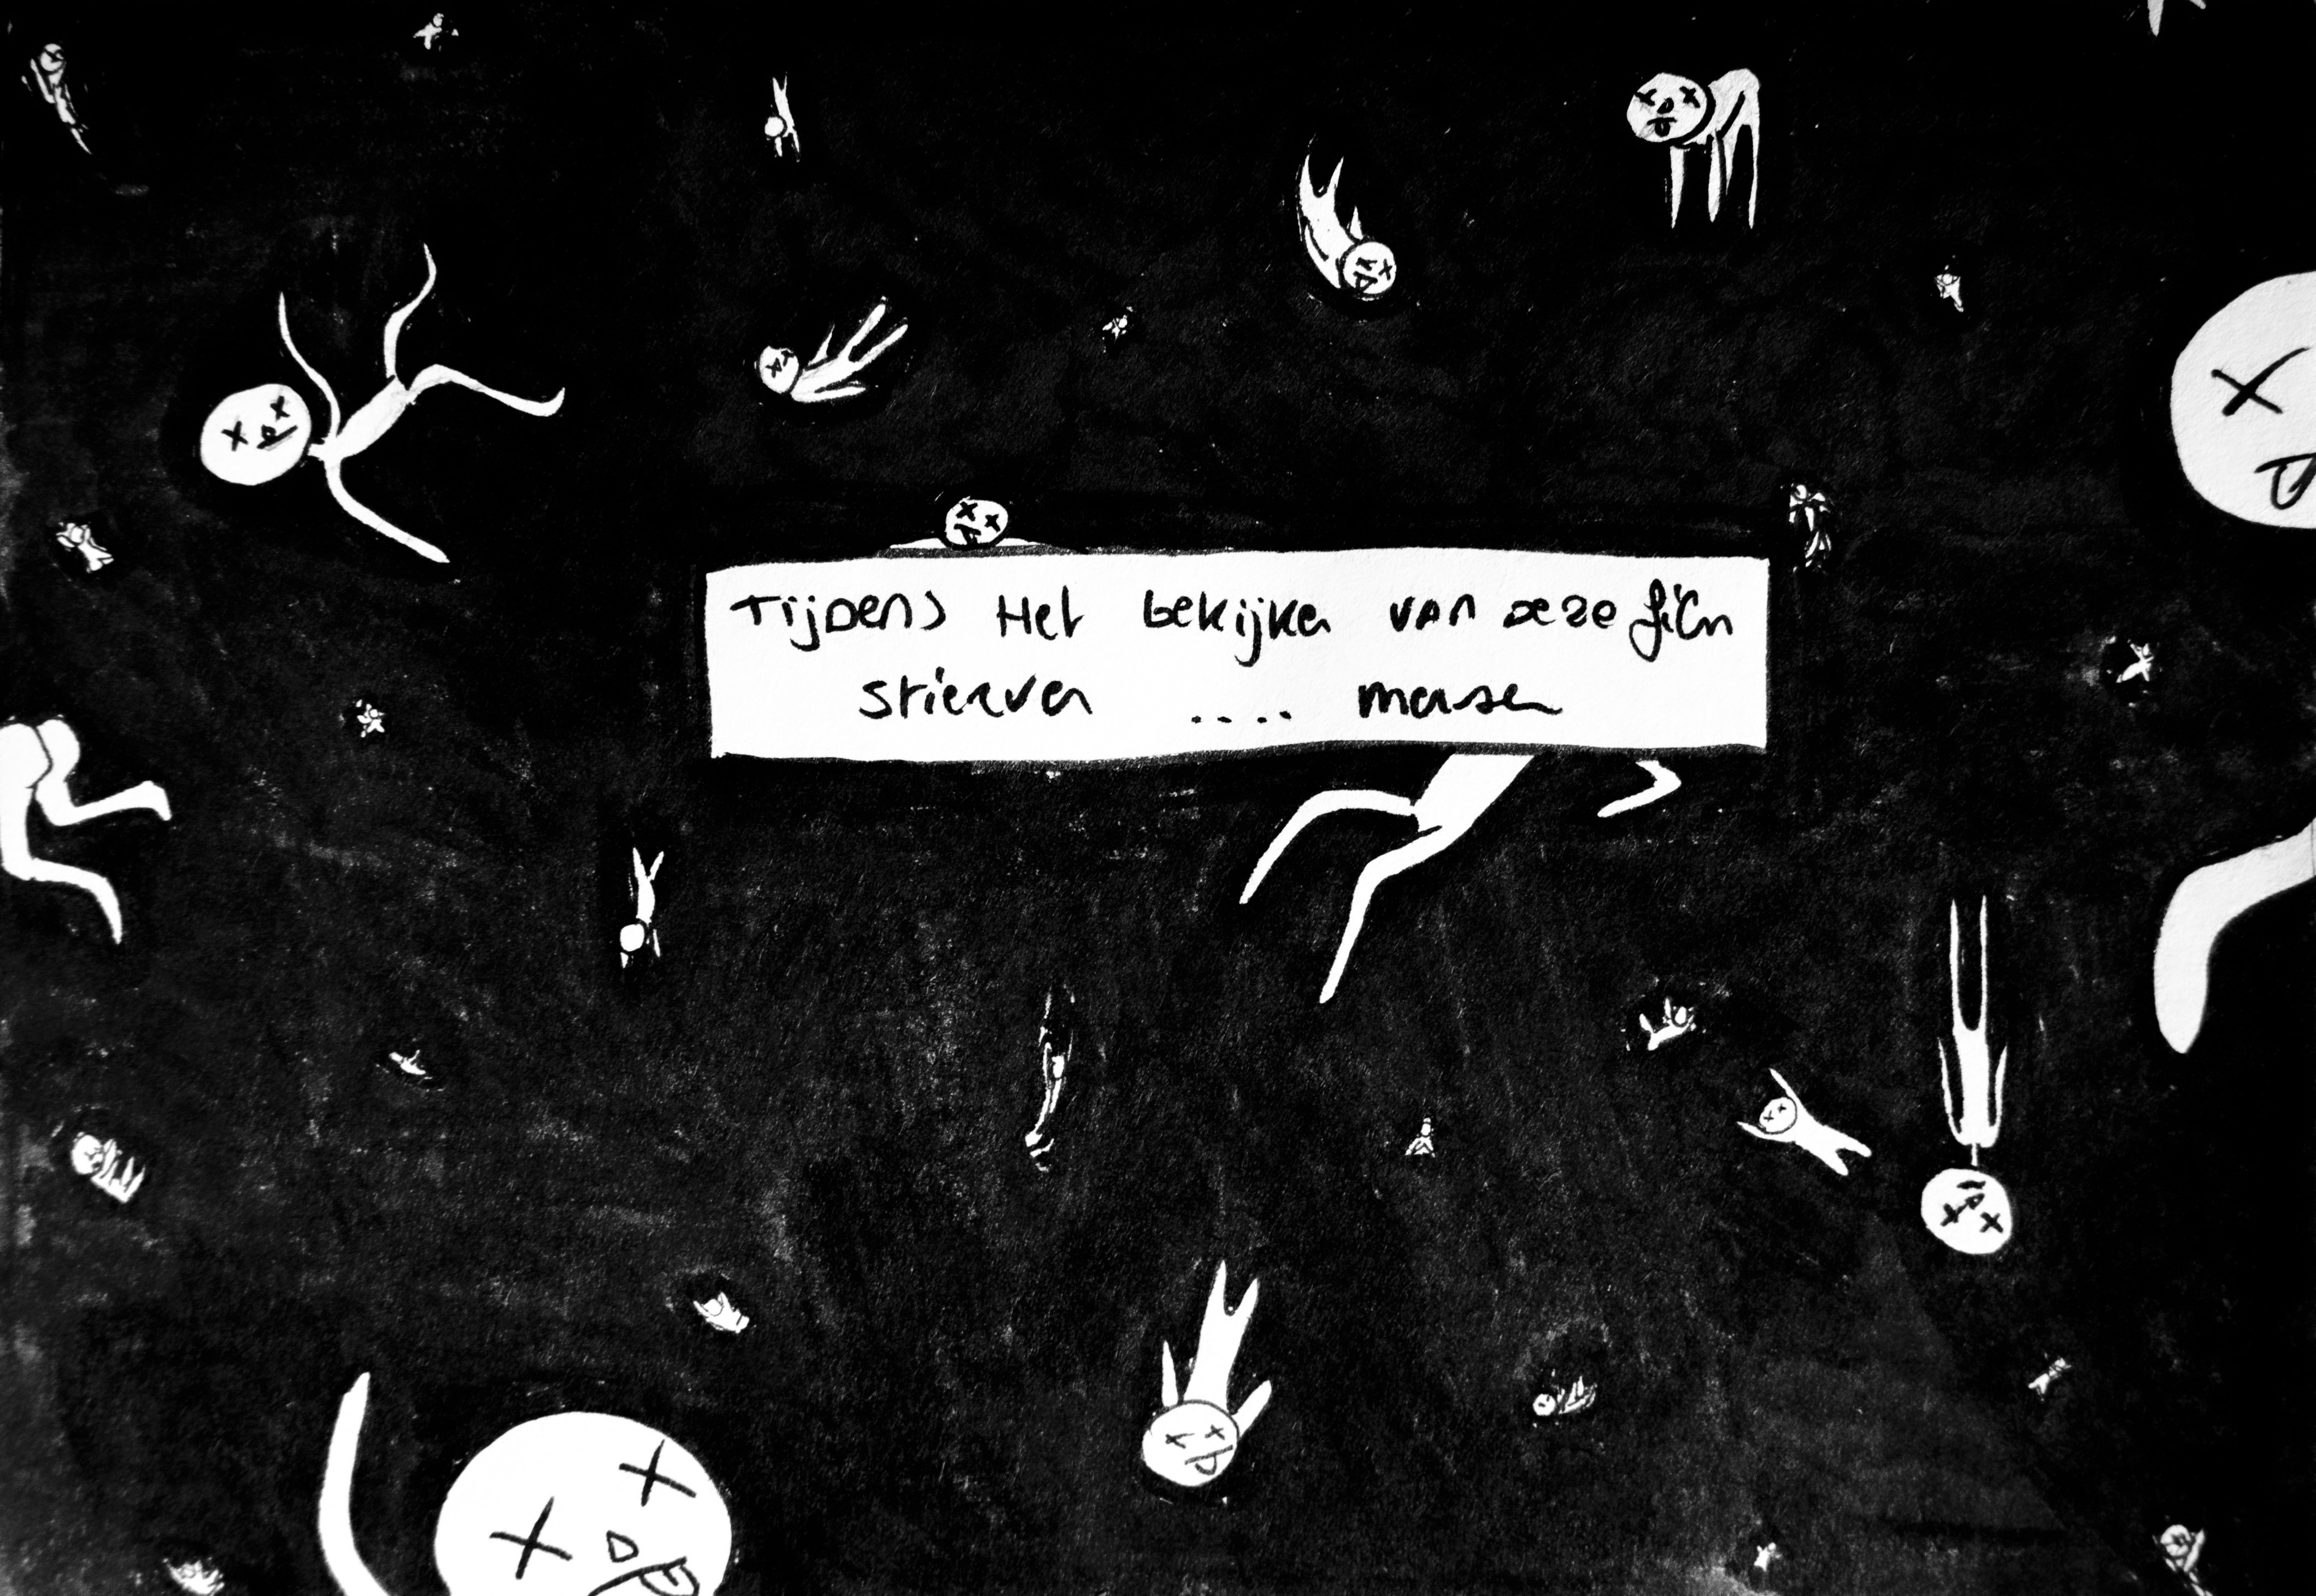 Tijdens Het bekijken van deze film
stierven .... mensen